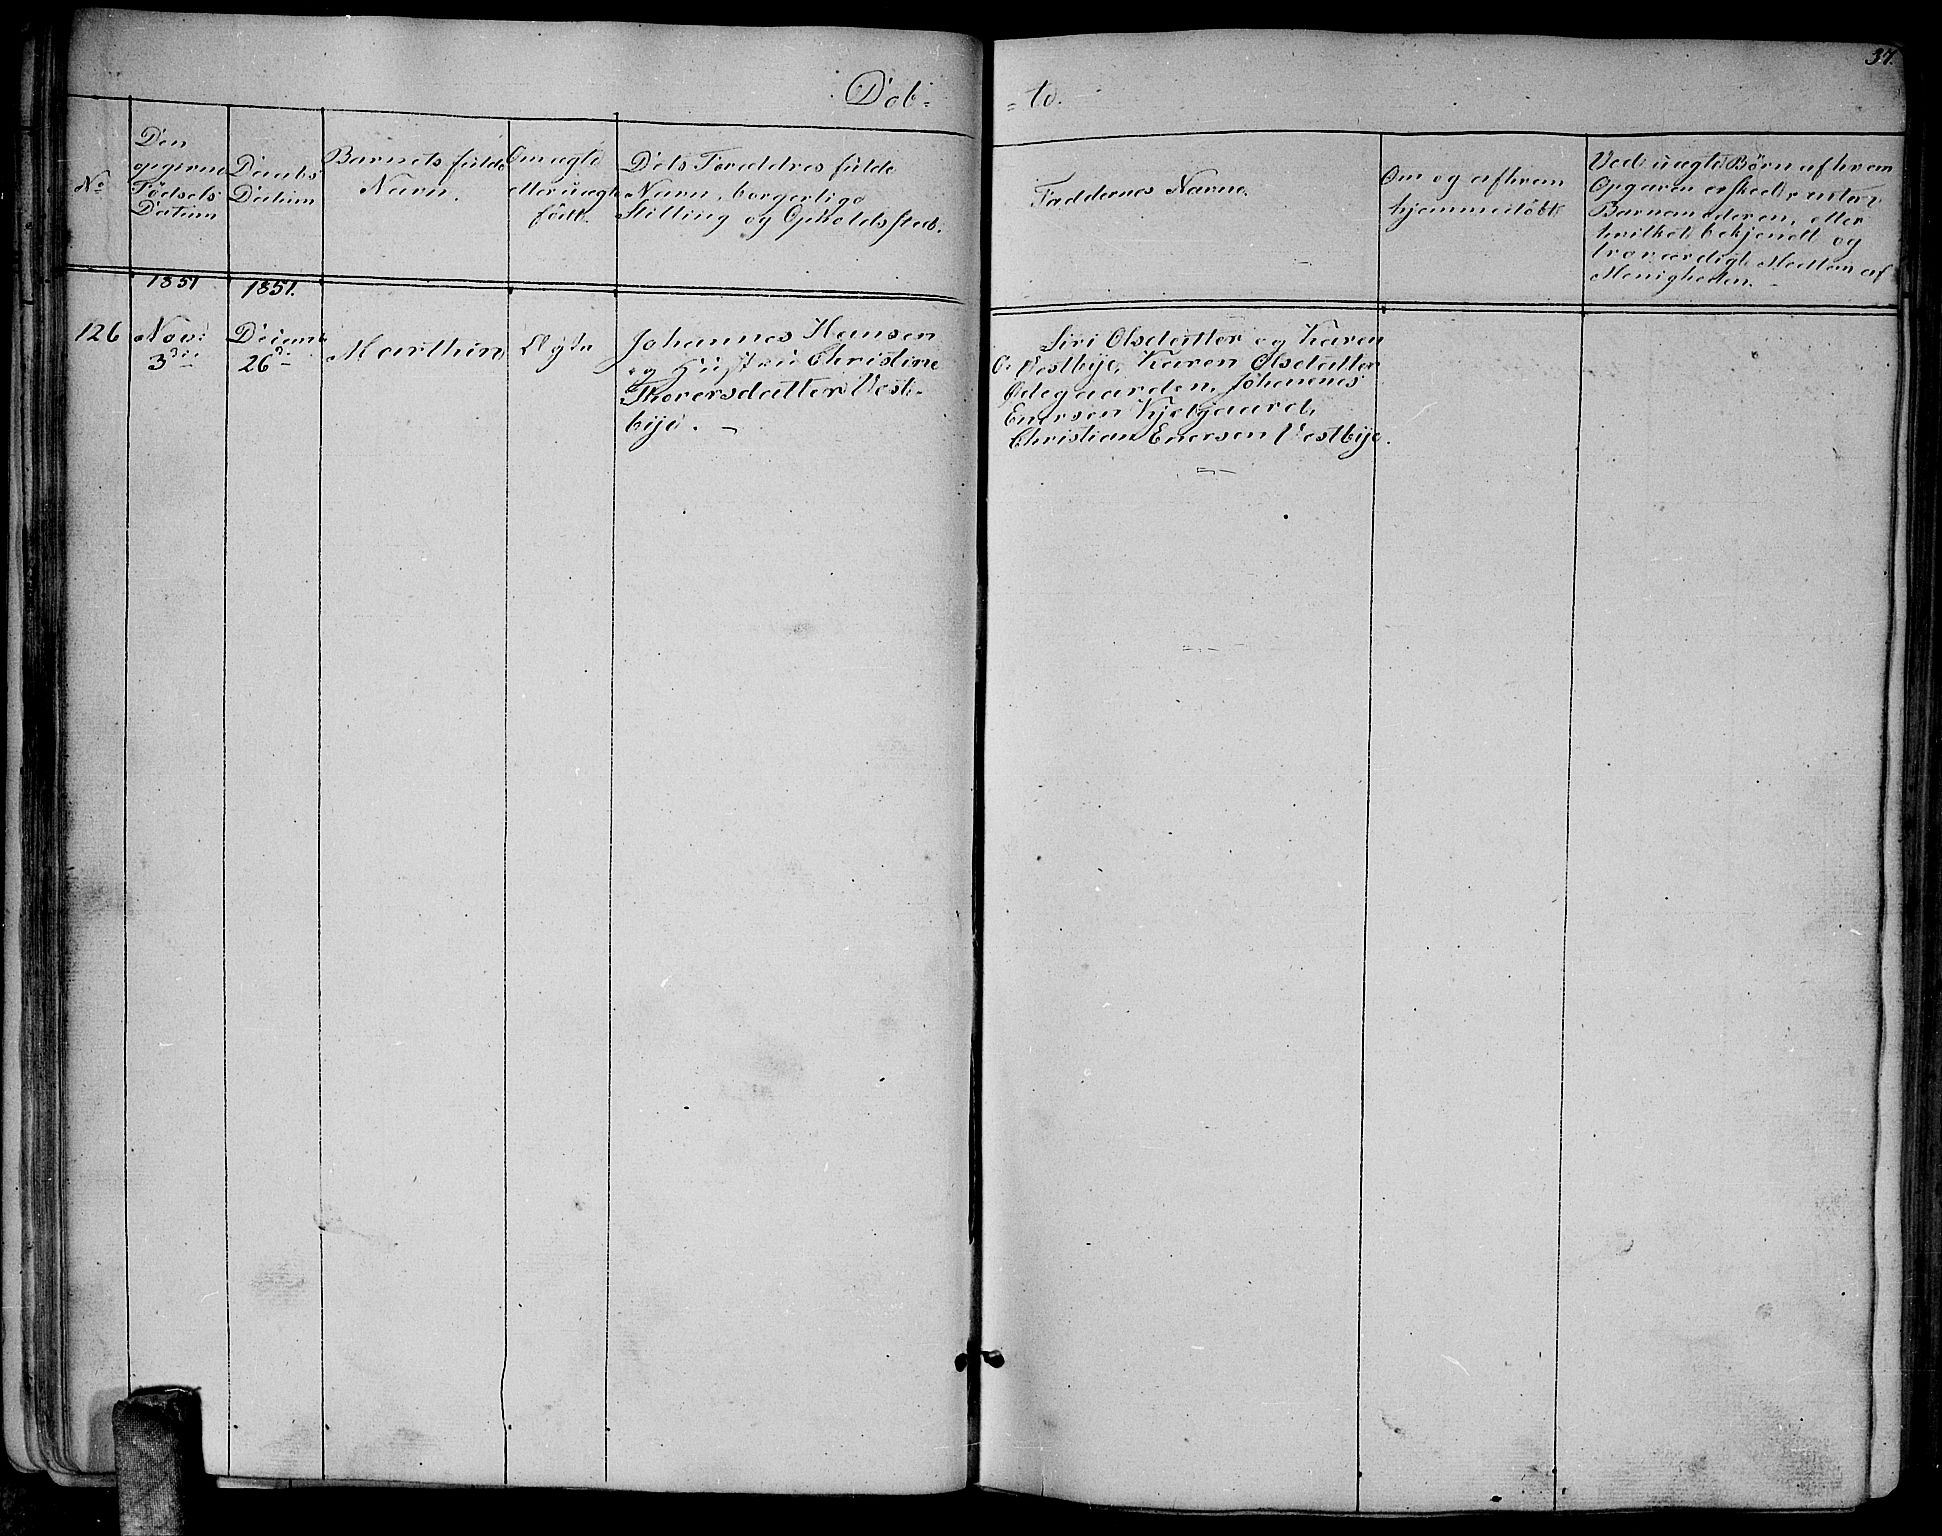 37.
Døb-
-te.
No
Den
opgivne
Fødsels
Datum
Daabs
Datum
Barnets fulde
Navn.
Om ægte
eller uægte
født.
Dets Forældres fulde
Navn, borgerlige
Stilling og Opholdssted.
Faddernes Navne.
Om og af hvem
hjemmedøbt
Ved uægte Børn af hvem
Opgaven er skeed, enten
Barnemoderen, eller
hvilket bekjendt og
troværdigt Medlem af
Menigheden.
1851
1851.
126
Nov:
3die
Decemb
26de
Marthin
Ægte
Johannes Hansen
og Hustru Christine
Thoersdatter Vest-
bye.
Siri Olsdatter og Karen
O. Vestbye, Karen Olsdatter
Ødegaarden, Johannes
Enersen Kjelgaard,
Christian Enersen Vestbye.